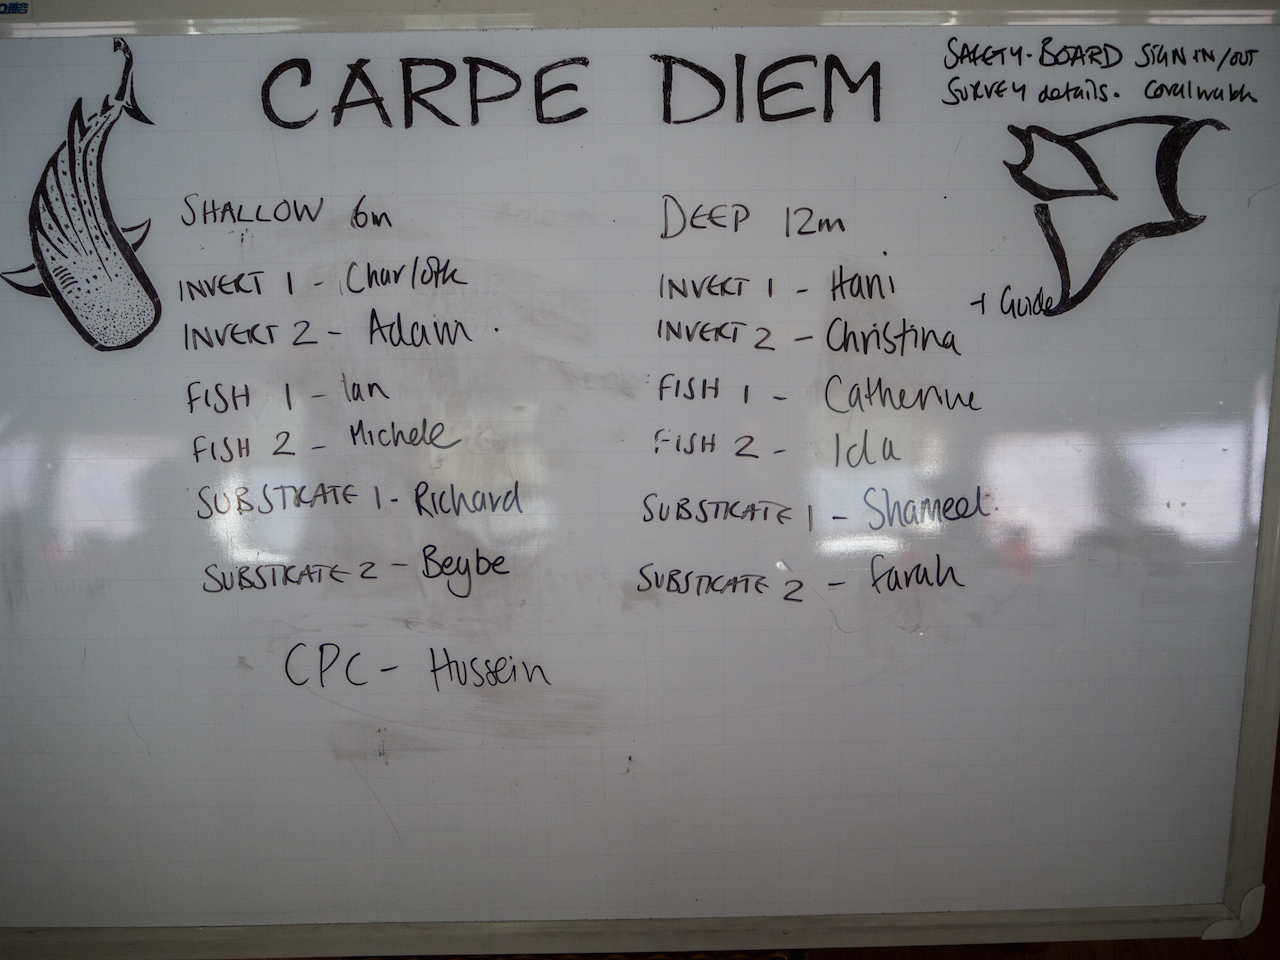 CARPE DIEM
SAFETY - BOARD SIGN IN/OUT
SURVEY details. Coralwatch
SHALLOW 6m
INVERT 1 - Charlotte
INVERT 2 - Adam.
FISH 1 - Ian
FISH 2 - Michele
SUBSTRATE 1 - Richard
SUBSTRATE 2 - Beybe
CPC - Hussein
DEEP 12m
INVERT 1 - Hani
+ Guide
INVERT 2 - Christina
FISH 1 - Catherine
FISH 2 - Ida
SUBSTRATE 1 - Shameel.
SUBSTRATE 2 - Farah